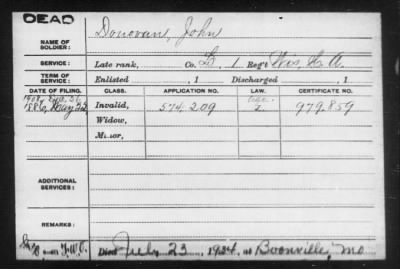 DEAD
NAME OF SOLDIER: Donovan, John
SERVICE: Late rank, Co. L, 1 Reg't Wis. H. A.
TERM OF SERVICE: Enlisted , 1 Discharged , 1
DATE OF FILING. CLASS. APPLICATION NO. LAW. CERTIFICATE NO.
1886, May 22, Invalid, 574.209 2 979.859
Widow,
Minor,
ADDITIONAL SERVICES:
REMARKS:
Died July 23, 1924, at Boonville, Mo